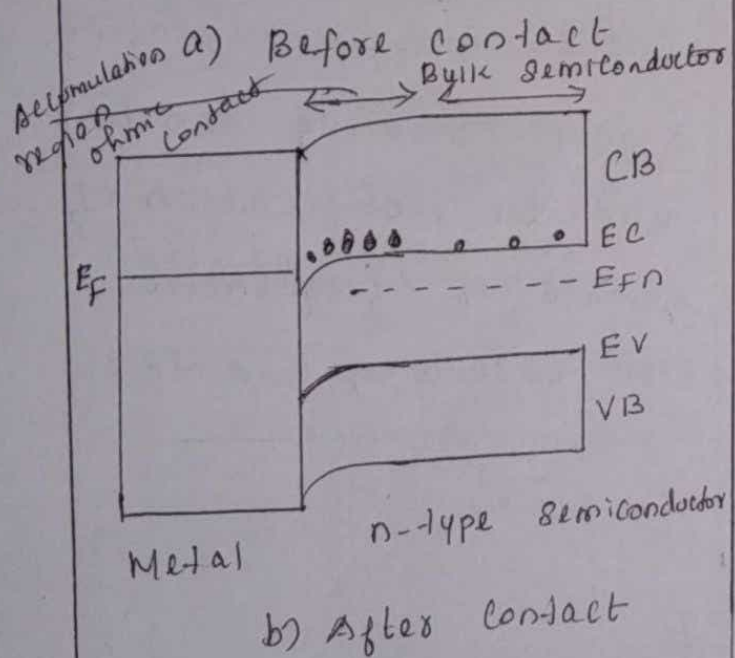 a) Before contact
Accumulation
region
ohmic contact
Bylk semiconductor
CB
EC
EF
EFn
EV
VB
Metal
n-type semiconductor
b) After contact